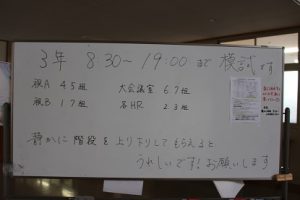 3年 8:30〜19:00まで 模試です
視A 45組 大会議室 67組
視B 17組 各HR 23組
静かに階段を上り下りしてもらえると
うれしいです！お願いします